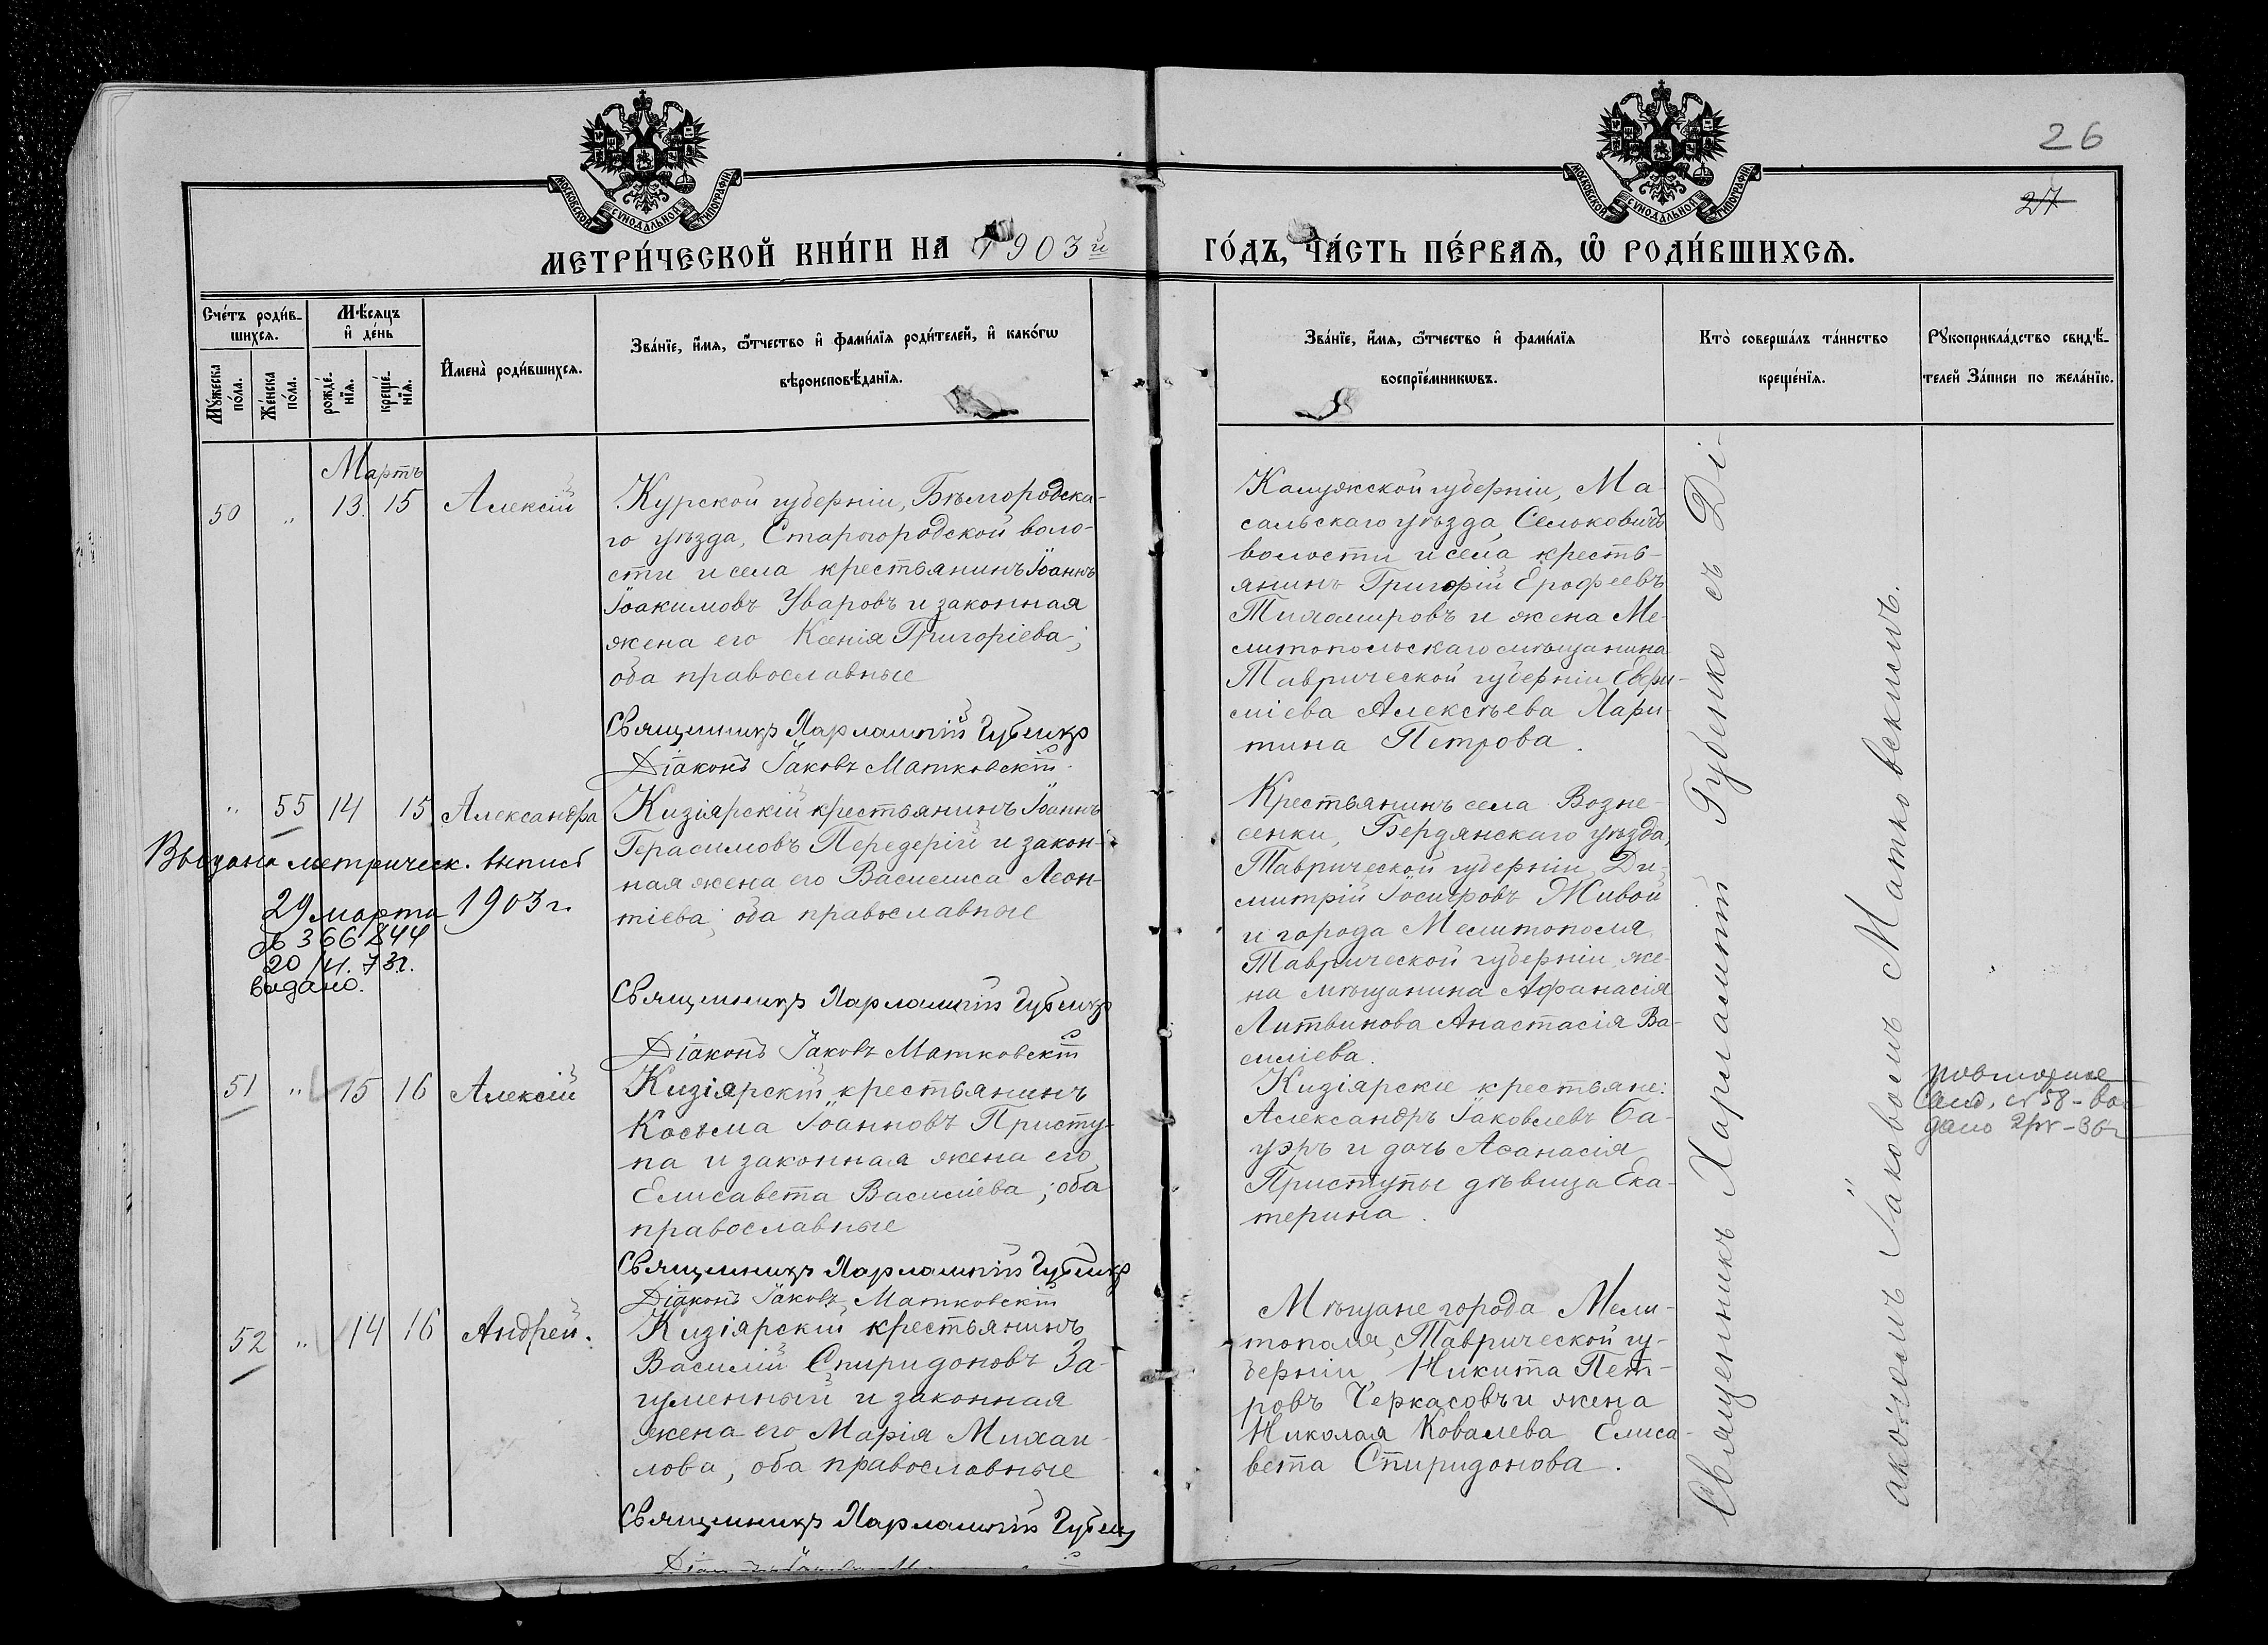 26
27
МОСКОВСКОЙ СѴНОДАЛЬНОЙ ТИПОГРАФІИ
МОСКОВСКОЙ СѴНОДАЛЬНОЙ ТИПОГРАФІИ
МЕТРИ́ЧЕСКОЙ КНИ́ГИ НА 1903й ГО́ДЪ, ЧА́СТЬ ПЕ́РВАЯ, Ѡ҆ РОДИ́ВШИХСЯ.
Сче́тъ роди́в-
шихся.
Му́жеска по́ла.
Же́нска по́ла.
Мѣ́сяцъ и҆ де́нь
рожде́-
нїя.
креще́-
нїя.
И҆мена̀ роди́вшихся.
Зва́нїе, и҆́мя, ѻ҆́тчество и҆ фами́лїя роди́телей, и҆ како́гѡ
вѣроисповѣ́данїя.
Зва́нїе, и҆́мя, ѻ҆́тчество и҆ фами́лїя
воспрїе́мникѡвъ.
Кто̀ соверша́лъ та́инство
креще́нїя.
Рукоприкла́дство свидѣ́-
телей за́писи по жела́нїю.
Мартъ
50 " 13 15 Алексій
Курской губерніи, Бѣлгородска-
го уѣзда, Старогородской воло-
сти и села крестьянинъ Іоаннъ
Іоакимовъ Уваровъ и законная
жена его Ксенія Григоріева;
оба православные
Священникъ Харлампій Губенко
Діаконъ Іаковъ Матковскій
Калужской губерніи, Ма-
сальскаго уѣзда, Сельковичъ
волости и села кресть-
янинъ Григорій Ерофеевъ
Тихомировъ и жена Ме-
литопольскаго мѣщанина
Таврической губерніи Евфи-
міева Алексѣева Хари-
тина Петрова.
" 55 14 15 Александра
Кизіярскій крестьянинъ Іоаннъ
Герасимовъ Передерій и закон-
ная жена его Василиса Леон-
тіева; оба православные
Священникъ Харлампій Губенко
Діаконъ Іаковъ Матковскій
Выдана метрическ. выпись
29 марта 1903 г.
№ 366844
20/VI. 73г.
видано.
Крестьянинъ села Возне-
сенки, Бердянскаго уѣзда,
Таврической губерніи, Ди-
митрій Іосифовъ Живой
и города Мелитополя
Таврической губерніи, же-
на мѣщанина Афанасія
Литвинова Анастасія Ва-
силіева.
51 " 15 16 Алексій
Кизіярскій крестьянинъ
Косьма Іоанновъ Присту-
па и законная жена его
Елисавета Василіева; оба
православные
Священникъ Харлампій Губенко
Діаконъ Іаковъ Матковскій
Кизіярскіе крестьяне:
Александръ Іаковлевъ Ба-
уэръ и дочь Аѳанасія
Приступы дѣвица Ека-
терина.
52 " 14 16 Андрей.
Кизіярскій крестьянинъ
Василій Спиридоновъ За-
гуменный и законная
жена его Марія Михаи-
лова, оба православные
Священникъ Харлампій Губенко
Мѣщане города Мели-
тополя, Таврической гу-
берніи, Никита Пет-
ровъ Черкасовъ и жена
Николая Ковалева Елиса-
вета Спиридонова.
Священникъ Харлампій Губенко съ Ді-
акономъ Іаковомъ Матковскимъ.